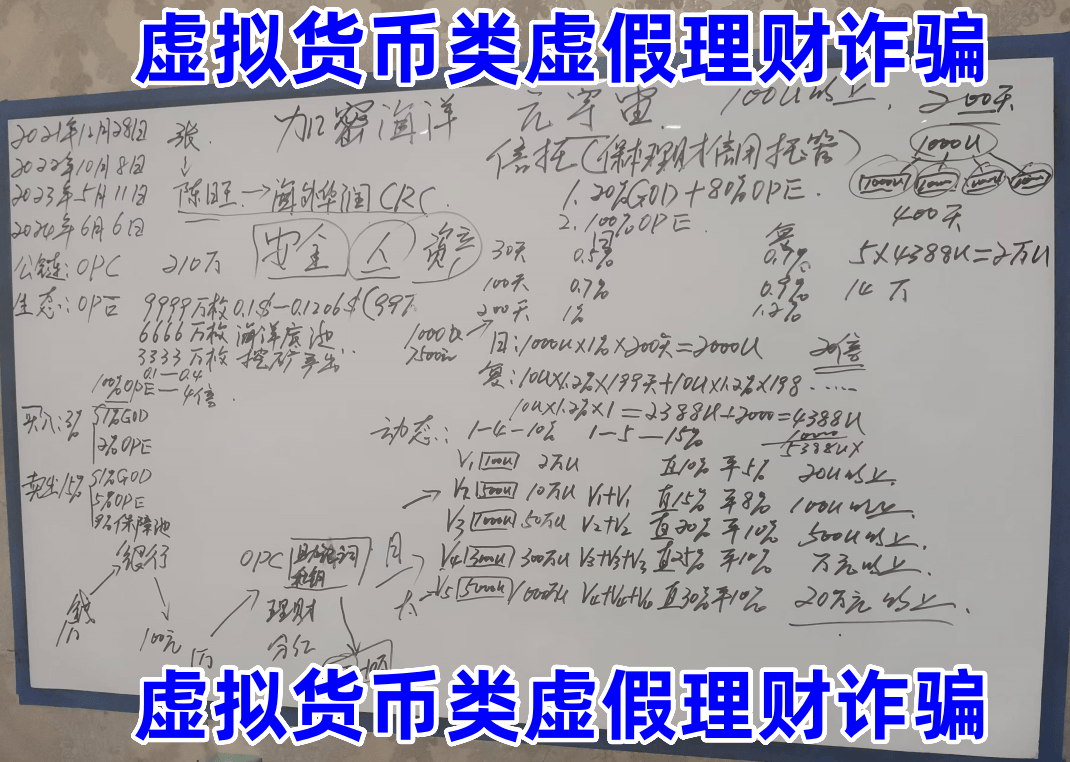 虚拟货币类虚假理财诈骗
2021年12月28日 张.
加密海洋 元宇宙 100U以上. 200天
2022年10月8日
信托(保本理财信用托管)
1000U
2023年5月11日
陈旺→海外华润CRC
1. 20%GOD+80%OPE.
2. 100%OPE.
400天
2024年6月6日
安全 人 资产
公链:OPC 210万
30天 0.5% 0.7%
复
5×4388U=2万U
100天 0.7% 0.9% 14万
200天 1% 1.2%
生态:OPE 9999万枚 0.1$—0.1206$(997
6666万枚 海洋底池
3333万枚 挖矿产出
0.1—0.4
100%OPE—4倍.
1000U
日:1000U×1%×200天=2000U 20倍
复:10U×1.2%×199天+10U×1.2%×198......
10U×1.2%×1=2388U+2000=4388U
买入:3% 51%GOD
2%OPE
卖出15% 51%GOD
5%OPE
9%保障池
动态: 1-4-10% 1-5-15%
5388U×
V1 100U 2万U 直10% 平5% 20U以上.
V2 500U 10万U V1+V1 直15% 平8% 100U以上.
V3 1000U 50万U V2+V2 直20% 平10% 500U以上.
V4 3000U 300万U V3+V3+V3 直25% 平10% 万元以上.
V5 5000U 直30% 平10% 20万元以上.
银行
钱
100元 1万
OPC 助记词
私钥
理财
分红
虚拟货币类虚假理财诈骗